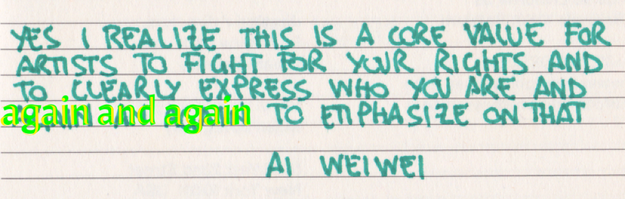 YES I REALIZE THIS IS A CORE VALUE FOR
ARTISTS TO FIGHT FOR YOUR RIGHTS AND
TO CLEARLY EXPRESS WHO YOU ARE AND
again and again TO EMPHASIZE ON THAT
AI WEIWEI